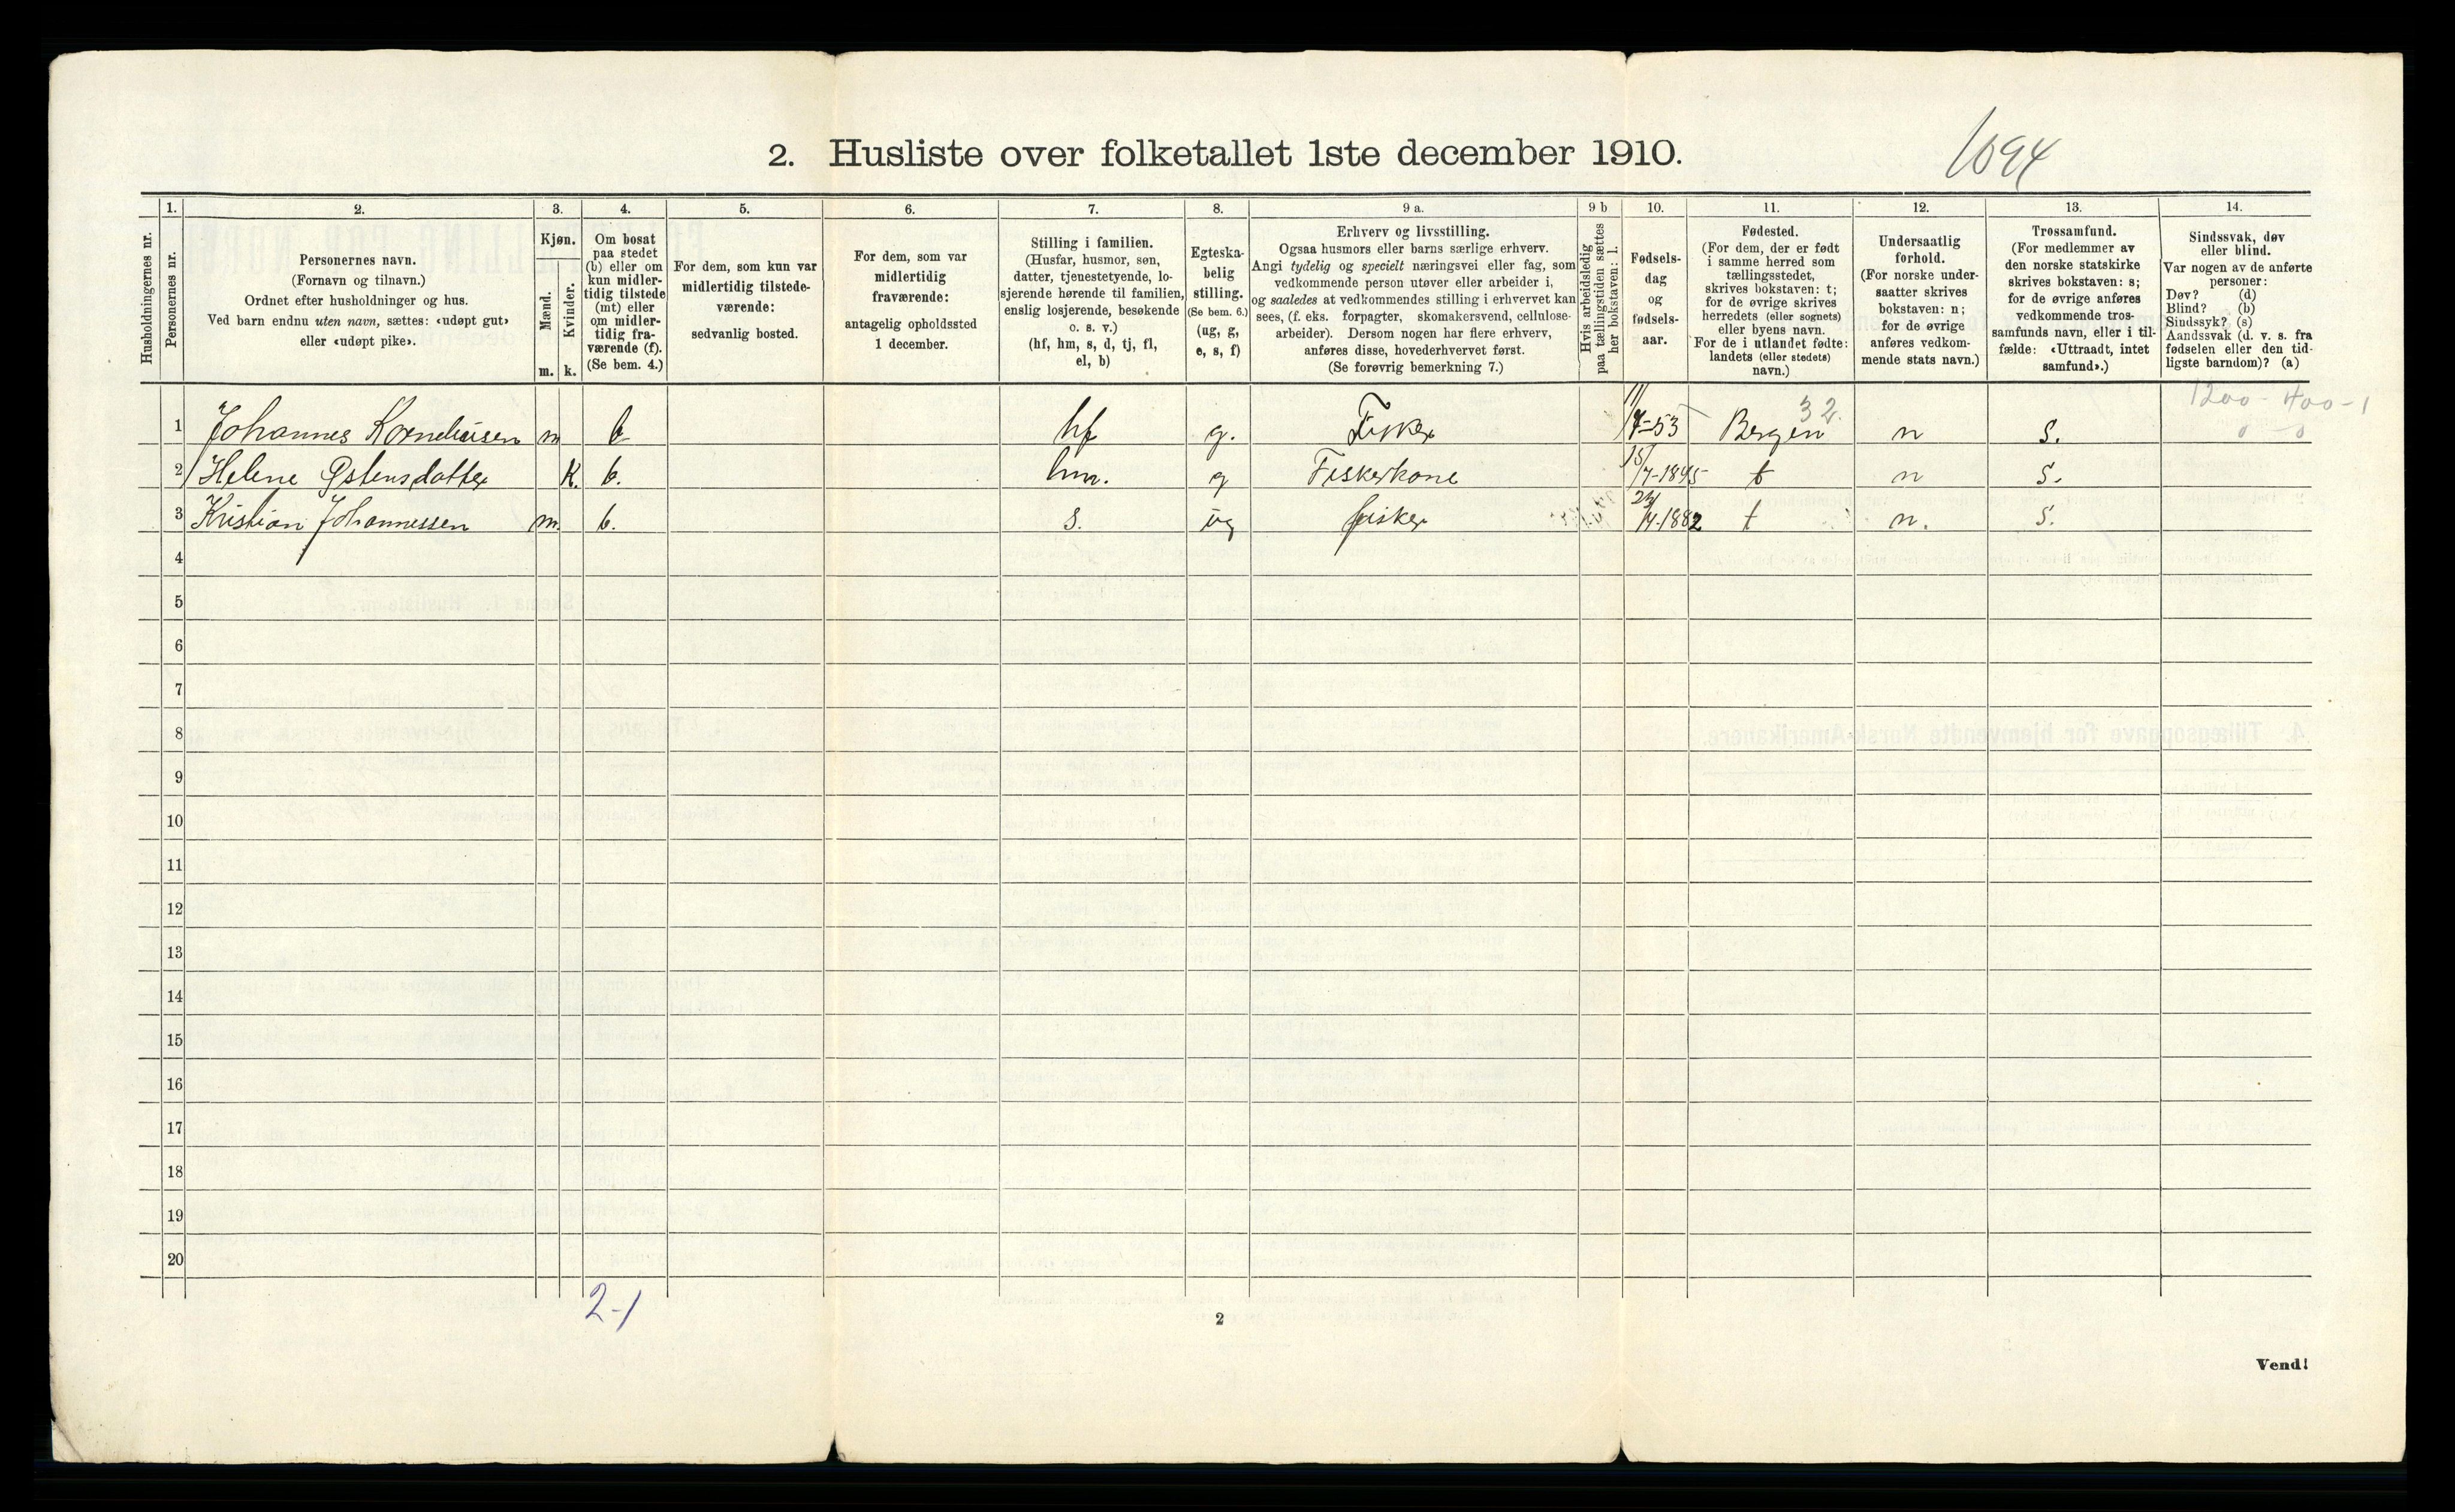 2. Husliste over folketallet 1ste december 1910.
1694
1. 2. 3. 4. 5. 6. 7. 8. 9 a. 9 b 10. 11. 12. 13. 14.
Husholdningernes nr.
Personernes nr.
Personernes navn.
(Fornavn og tilnavn.)
Ordnet efter husholdninger og hus.
Ved barn endnu uten navn, sættes: «udøpt gut»
eller «udøpt pike».
Kjøn.
Mænd.
Kvinder.
m. k.
Om bosat
paa stedet
(b) eller om
kun midler-
tidig tilstede
(mt) eller
om midler-
tidig fra-
værende (f).
(Se bem. 4.)
For dem, som kun var
midlertidig tilstede-
værende:
sedvanlig bosted.
For dem, som var
midlertidig
fraværende:
antagelig opholdssted
1 december.
Stilling i familien.
(Husfar, husmor, søn,
datter, tjenestetyende, lo-
sjerende hørende til familien,
enslig losjerende, besøkende
o. s. v.)
(hf, hm, s, d, tj, fl,
el, b)
Egteska-
belig
stilling.
(Se bem. 6.)
(ug, g,
e, s, f)
Erhverv og livsstilling.
Ogsaa husmors eller barns særlige erhverv.
Angi tydelig og specielt næringsvei eller fag, som
vedkommende person utøver eller arbeider i,
og saaledes at vedkommendes stilling i erhvervet kan
sees, (f. eks. forpagter, skomakersvend, cellulose-
arbeider). Dersom nogen har flere erhverv,
anføres disse, hovederhvervet først.
(Se forøvrig bemerkning 7.)
Hvis arbeidsledig
paa tællingstiden sættes
her bokstaven: l.
Fødsels-
dag
og
fødsels-
aar.
Fødested.
(For dem, der er født
i samme herred som
tællingsstedet,
skrives bokstaven: t;
for de øvrige skrives
herredets (eller sognets)
eller byens navn.
For de i utlandet fødte:
landets (eller stedets)
navn.)
Undersaatlig
forhold.
(For norske under-
saatter skrives
bokstaven: n;
for de øvrige
anføres vedkom-
mende stats navn.)
Trossamfund.
(For medlemmer av
den norske statskirke
skrives bokstaven: s;
for de øvrige anføres
vedkommende tros-
samfunds navn, eller i til-
fælde: «Uttraadt, intet
samfund».)
Sindssvak, døv
eller blind.
Var nogen av de anførte
personer:
Døv? (d)
Blind? (b)
Sindssyk? (s)
Aandssvak (d. v. s. fra
fødselen eller den tid-
ligste barndom)? (a)
32. 1200 - 400 - 1
0 - 0
1 Johannes Korneliusen m b hf g. Fisker 11/7-53 Bergen n s.
2 Helene Østensdatter K. b. hm. g Fiskerkone 15/7-1845 t n s.
3 Kristian Johannessen m. b. s. ug fisker /4-1882 t n. s.
4
5
6
7
8
9
10
11
12
13
14
15
16
17
18
19
20
2-1
2
Vend!